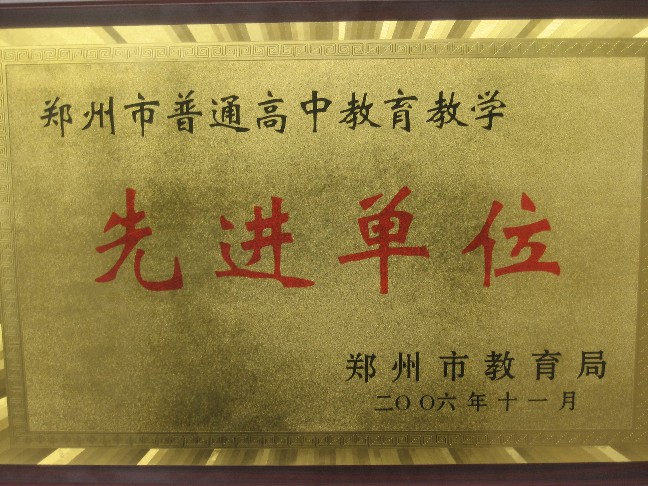 郑州市普通高中教育教学
先进单位
郑州市教育局
二〇〇六年十一月